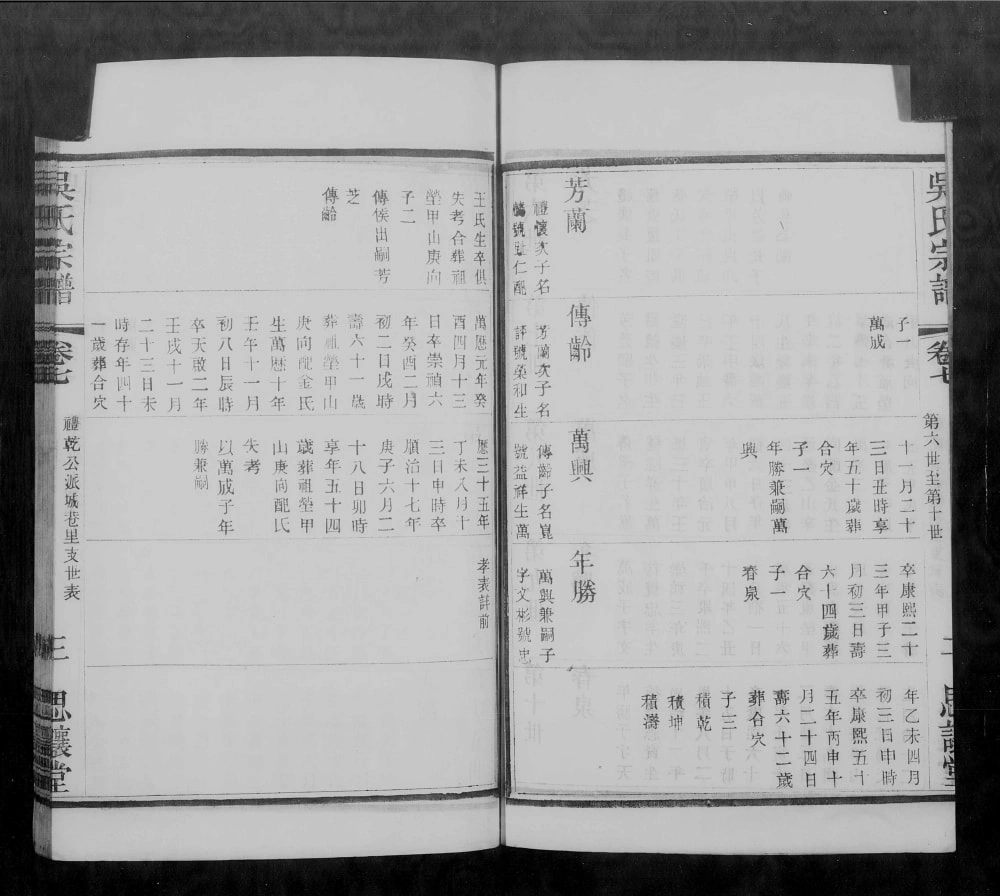 吳氏宗譜
卷七
第六世至第十世
二
思讓堂
子一
萬成
十一月二十
三日丑時享
年五十歲葬
合穴
子一
年勝兼嗣萬
興
卒康熙二十
三年甲子三
月初三日壽
六十四歲葬
合穴
子一
春泉
年乙未四月
初三日申時
卒康熙五十
五年丙申十
月二十四日
壽六十二歲
葬合穴
子三
積乾
積坤
積濤
芳蘭
禮懷次子名
號趾仁配
王氏生卒俱
失考合葬祖
塋甲山庚向
子二
傳候出嗣芳
芝
傳齡
傳齡
芳蘭次子名
評號榮和生
萬曆元年癸
酉四月十三
日卒崇禎六
年癸酉二月
初二日戌時
壽六十一歲
葬祖塋甲山
庚向配金氏
生萬曆十年
壬午十一月
初八日辰時
卒天啟二年
壬戌十一月
二十三日未
時存年四十
一歲葬合穴
萬興
傳齡子名
號益祥生萬
曆三十五年
丁未八月十
三日申時卒
順治十七年
庚子六月二
十八日卯時
享年五十四
歲葬祖塋甲
山庚向配氏
失考
以萬成子年
勝兼嗣
年勝
萬興兼嗣子
字文彬號忠
孝表詳前
吳氏宗譜
卷七
禮乾公派城巷里支世表
三
思讓堂